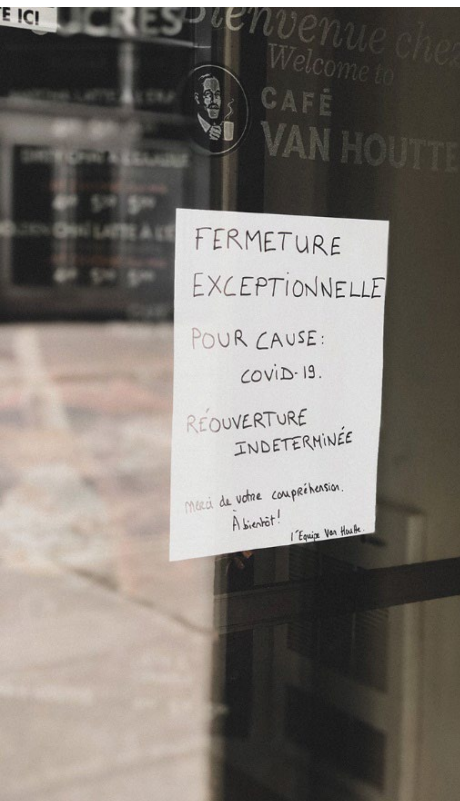 E ICI
SUCRÉS
Bienvenue chez
Welcome to
CAFÉ
VAN HOUTTE
FERMETURE
EXCEPTIONNELLE
POUR CAUSE:
COVID-19.
RÉOUVERTURE
INDETERMINÉE
Merci de votre compréhension.
À bientôt!
l'Equipe Van Houtte.